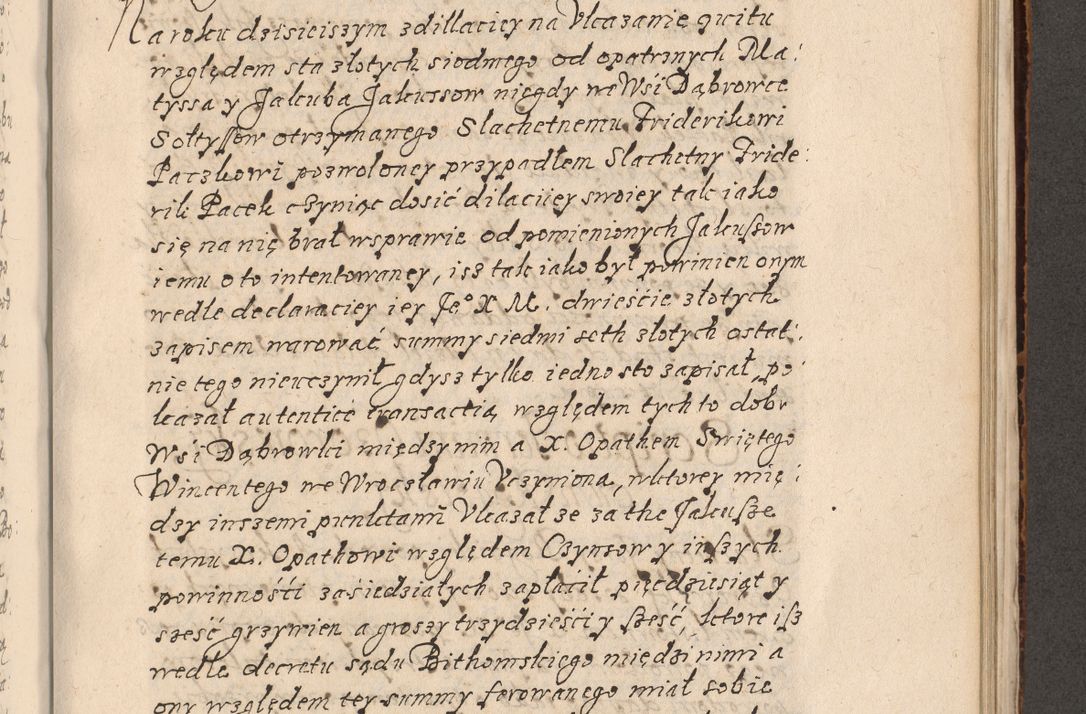 Na roku dzisieiszym z dillaciey na Vkazanie qwitu
względem sta złotych siodmego od opatrznych Ma:
tyssa y Jakuba Jakussow niegdy we Wśi Dąbrowce
Sołtyſſow otrzymanego Slachetnemu Friderikowi
Paczkowi pozwoloney przypadłem Slachetny Fride:
rik Pacek czyniąc dosić dilaciiey swoiey tak iako
się na nię brał wsprawie od pomienionych Jakuſzow
iemu o to intentowaney, isz tak iako był powinien onym
wedle declaraciey iey Jeº X M. dwieście złotych
zapisem warować summy siedmi seth złotych ostat:
nie tego nieuczynił gdysz tylko iedno sto zapisał, po
kazał autentice transactią względem tych to dobr
Wśi Dąbrowki między nim a X. Opathem Swiętego
Wincentego we Wrocławiu Vczyniona, wktorey mię:
dzy inszemi punktami Vkazał że za the Jakuſze
temu X. Opathowi względem Czynszow y inſzych
powinnośti zaśiedziałych zapłaćił pięcdziesiąt y
szesć grzywien a groszy trzydzieśći y ſzesć, ktore iſz
wedle decretu sądu Bithomskiego między nimi a
ony względem tey summy ferowanego miał sobie